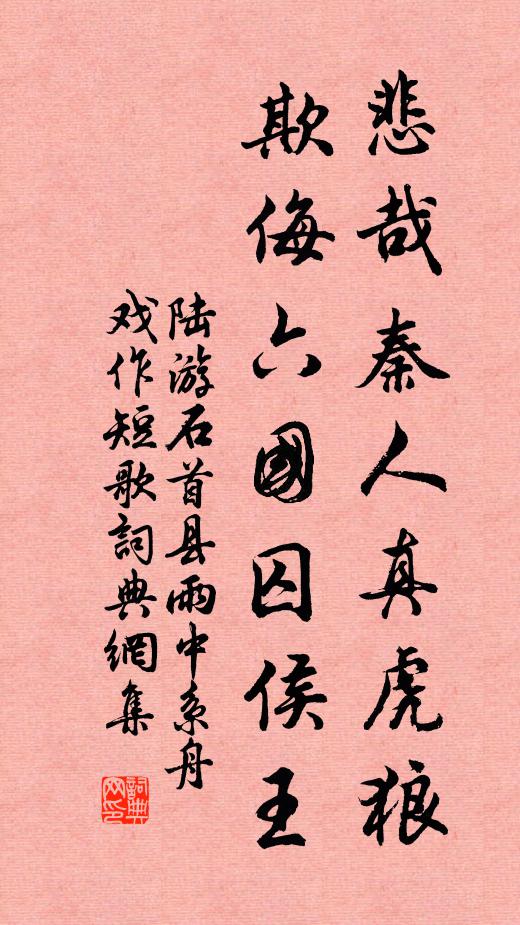 悲哉秦人真虎狼
欺侮六國囚侯王
陆游石首县雨中系舟
戏作短歌詞典網集
詞典网印